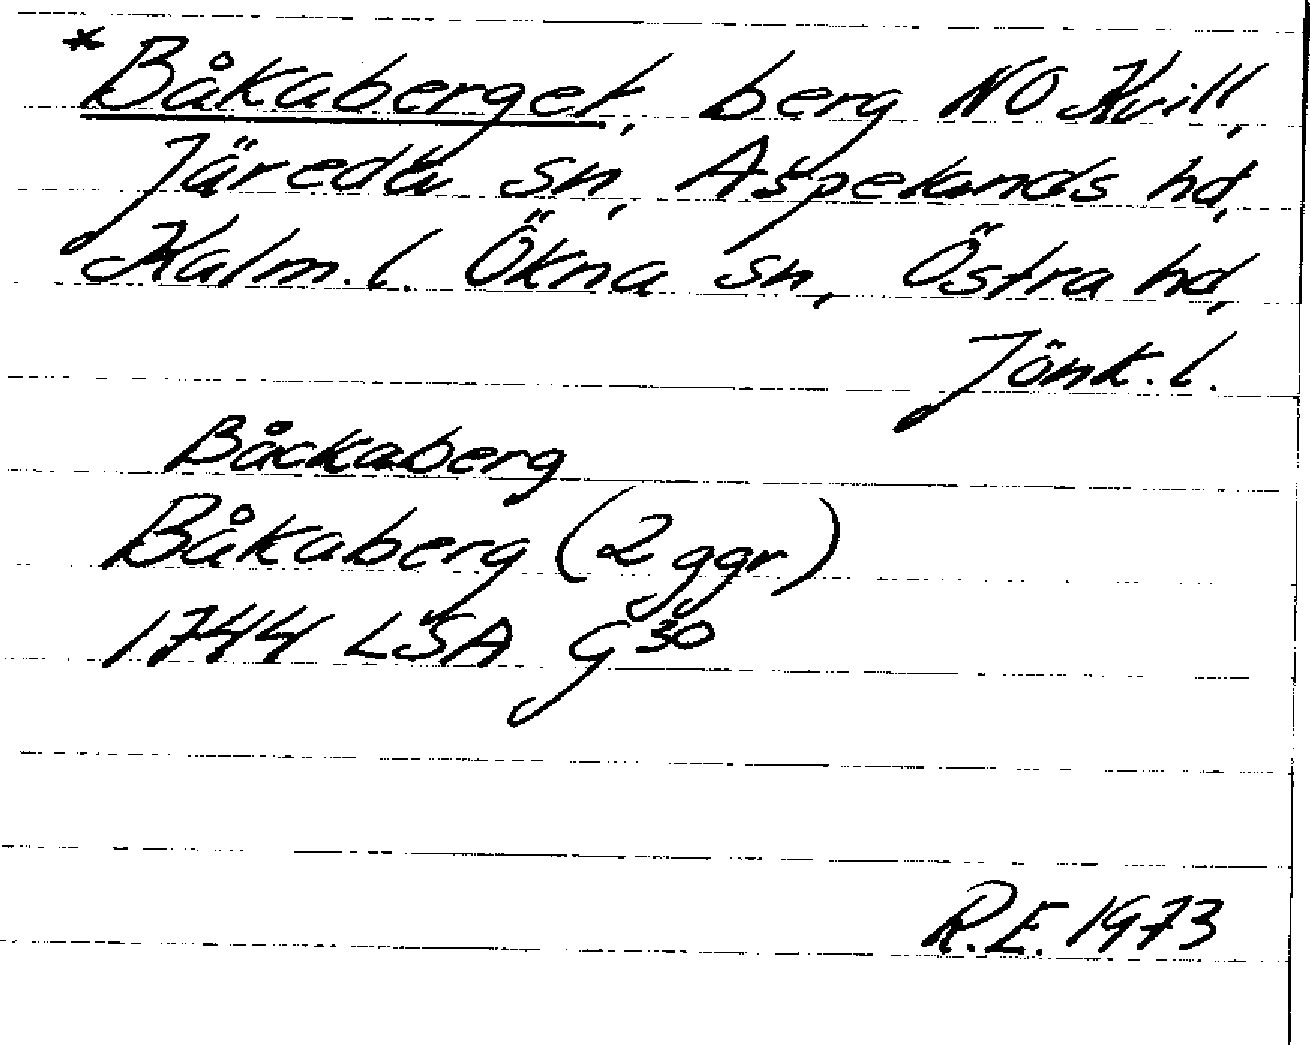 *Båkaberget, berg NO Kvill,
Järeda sn, Aspelands hd,
Kalm. l. Ökna sn, Östra hd,
Jönk. l.
Båckaberg
Båkaberg (2 ggr)
1744 LSA G30
R.E. 1973